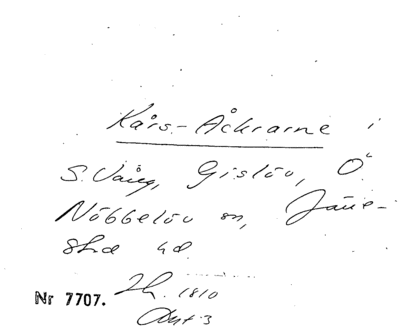 Kårs-Åkrarne i
S. Vång, Gislöv, Ö
Nöbbelöv sn, Järre-
stad hd.
Nr 7707. Lh. 1810
Akt 3